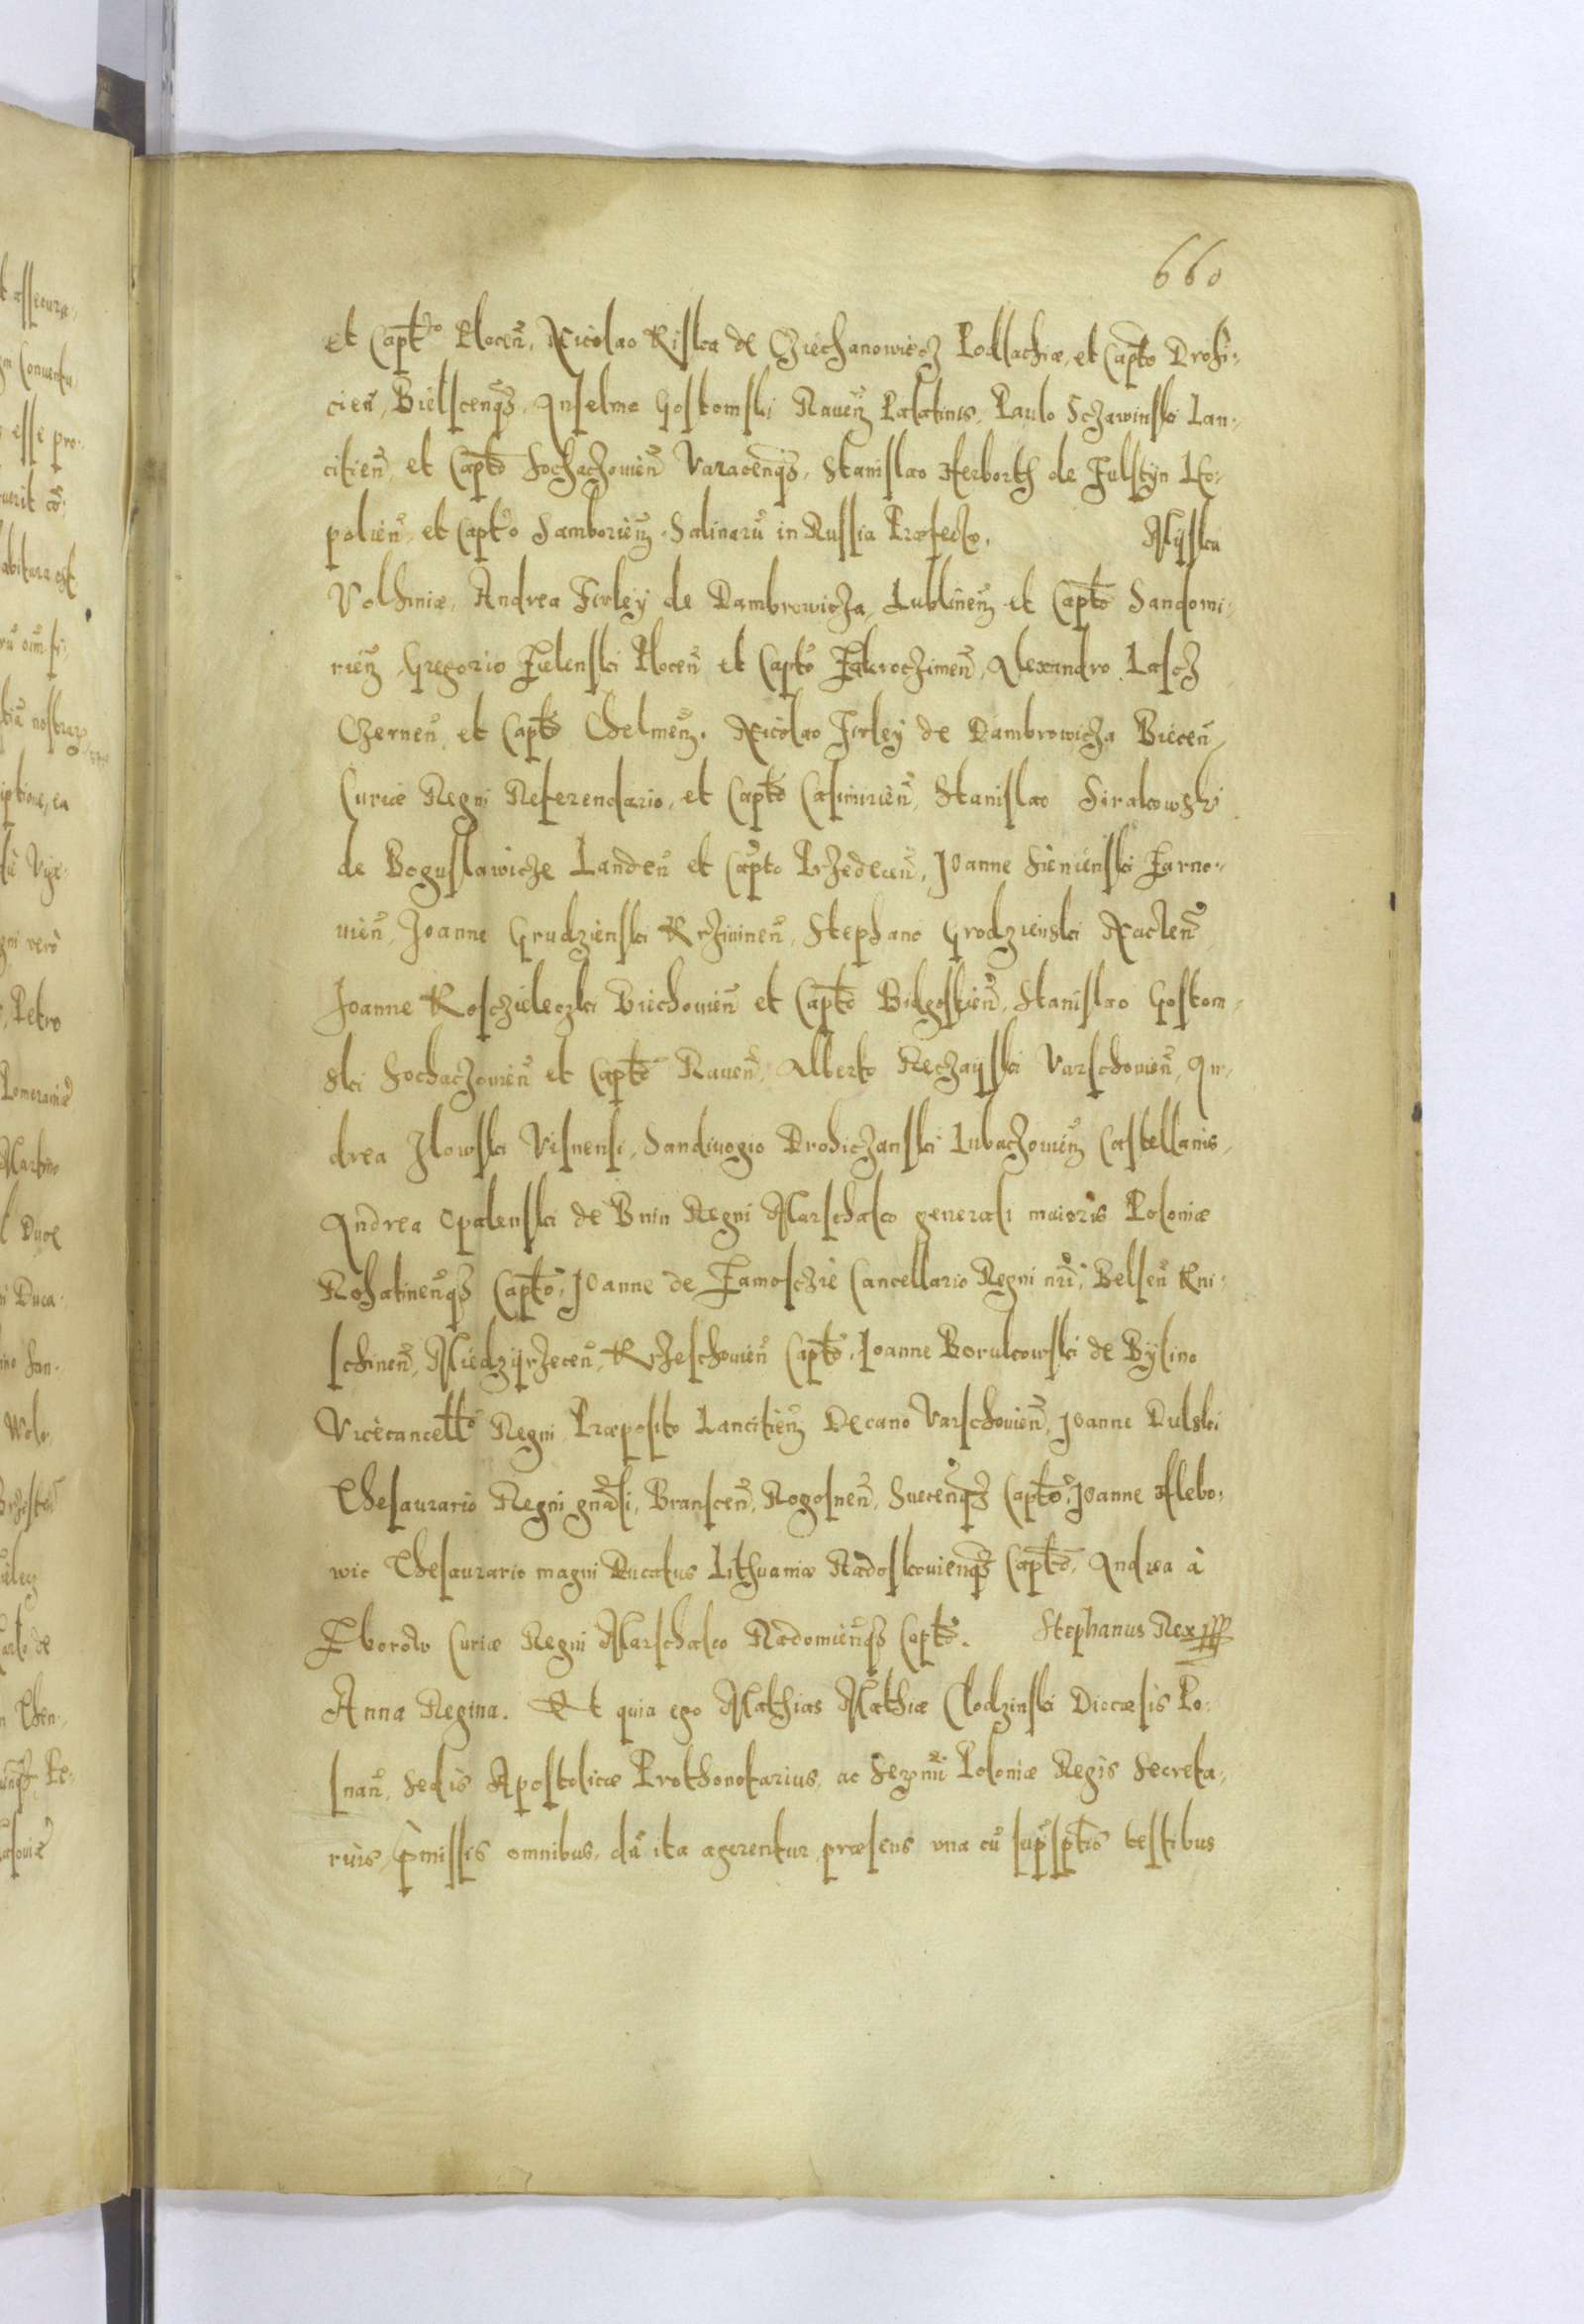 660
et Capt̃o Plocen̄, Nicolao Kiska de Cziechanowiecz Podlachiæ, et Capt̃o Drohi-
cien̄, Bielscenq̃, Anselmo Gostomski Rauen̄ Palatinis, Paulo Sczawinski Lan-
citien̄, et Capt̃o Sochaczouien̄ Varacenq̃, Stanislao Herborth de Fulstÿn Leo-
polien̄, et Capt̃o Samborien̄, Salinarũ in Russia Præfecto, Mÿska
Volhiniæ, Andrea Firleÿ de Dambrowicza, Lublinen̄ et Capt̃o Sandomi-
rien̄, Gregorio Zielenski Plocen̄ et Capt̃o Zakroczimen̄, Alexandro Lascz
Czernen̄, et Capt̃o Chelmen̄. Nicolao Firleÿ de Dambrowicza Biecen̄,
Curiæ Regni Referendario, et Capt̃o Casimirien̄, Stanislao Sirakowski
de Boguslawicze Landen̄ et Capt̃o Przedecen̄, Joanne Sienienski Zarno-
uien̄, Joanne Grudzienski Krziuinen̄, Stephano Grodzienski Naclen̄
Joanne Koscieleczki Biechouien̄ et Capt̃o Bidgostien̄, Stanislao Gostom-
ski Sochaczouien̄ et Capt̃o Rauen̄, Alberto Reczaÿski Varschouien̄, An-
drea Ilowski Visnensi, Sandiuogio Drohiczanski Lubaczouien̄ Castellanis,
Andrea Opalenski de Bnin Regni Marschalco generali maioris Poloniæ
Rohatinen̄q̃ Capt̃o, Joanne de Zamosczie Cancellario Regni nr̃i, Belsen̄ Kni-
schinen̄, Miedzÿrzecen̄, Krzeschouien̄ Capt̃o, Joanne Borukowski de Bÿlino
Vicecancell̃o Regni Præposito Lancitien̄ Decano Varschouien̄, Joanne Dulski
Thesaurario Regni gnãli, Branscen̄, Rogosnen̄, Suecenq̃ Capt̃o, Joanne Hlebo-
wic Thesaurario magni Ducatus Lithuaniæ Radoskouienq̃ Capt̃o, Andrea à
Zborow Curiæ Regni Marschalco Radomien̄q̃ Capt̃o. Stephanus Rex
Anna Regina. Et quia ego Mathias Mathiæ Clodzinski Diocæsis Po-
snan̄, Sedis Apostolicæ Prothonotarius, ac Ser̃mi Poloniæ Regis Secreta-
rius, p̃missis omnibus, dũ ita agerentur præsens vna cũ sup̃sptis testibus